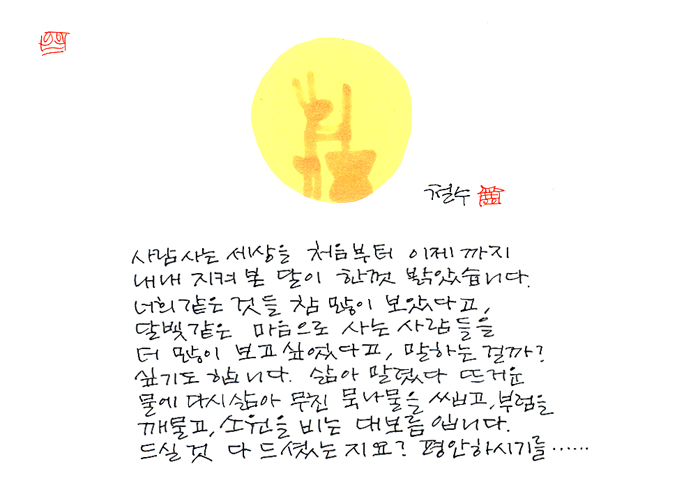 철수
사람사는 세상을 처음부터 이제 까지
내내 지켜 본 달이 한껏 밝았습니다.
너희같은 것들 참 많이 보았다고,
달빛같은 마음으로 사는 사람들을
더 많이 보고 싶었다고, 말하는 걸까?
싶기도 합니다. 삶아 말렸다 뜨거운
물에 다시 삶아 무친 묵나물을 씹고, 부럼을
깨물고, 소원을 비는 대보름 입니다.
드실 것 다 드셨는지요? 평안하시기를……